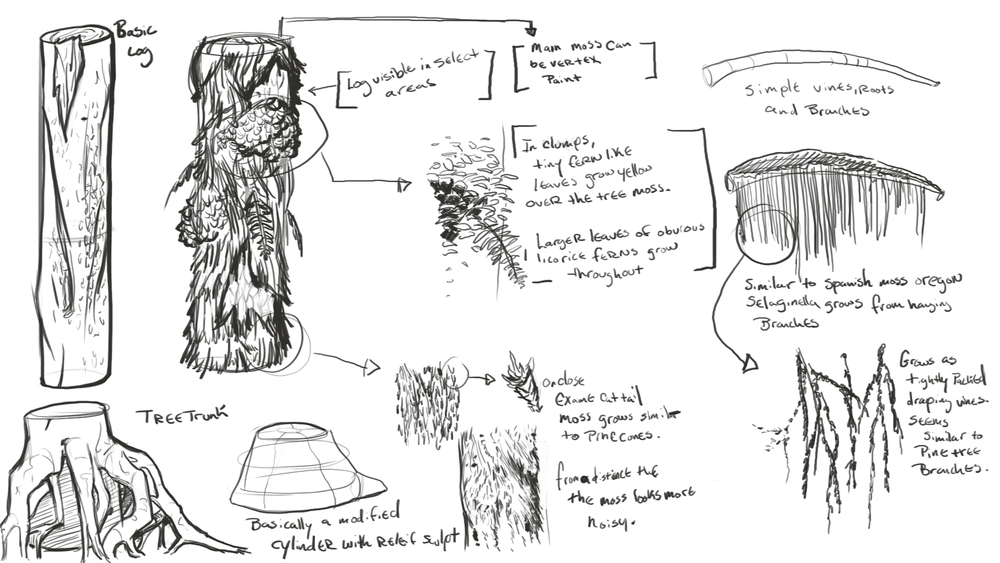 Basic
Log
Log visible in select
areas
Main moss can
be vertex
Paint
Simple vines, Roots
and Branches
In clumps,
tiny fern like
leaves grow yellow
over the tree moss.
Larger leaves of obvious
licorice ferns grow
throughout
Similar to spanish moss oregon
Selaginella grows from hanging
Branches
Grows as
tightly Packed
draping vines.
Seems
Similar to
Pine tree
Branches.
on close
exame cattail
moss grows similar
to Pinecones.
from a distance the
the moss looks more
noisy.
Tree Trunk
Basically a modified
cylinder with Releif sculpt